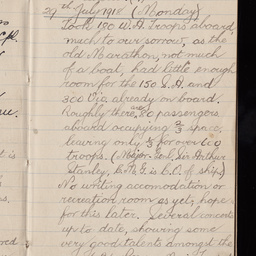 29th July 1918 (Monday)
Took 150 W.A. Troops aboard,
much to our sorrow, as the
old Marathon, not much
of a boat, had little enough
room for the 150 S.A. and
300 Vic already on board.
Roughly there are 80 passengers
aboard occupying 2/3 space,
leaving only 1/3 for over 600
troops. (Major-Genl. Sir Arthur
Stanley, is C.O. of ship)
No writing accomodation or
recreation room as yet, hope
for this later. Several concerts
up to date, showing some
very good talents amongst the